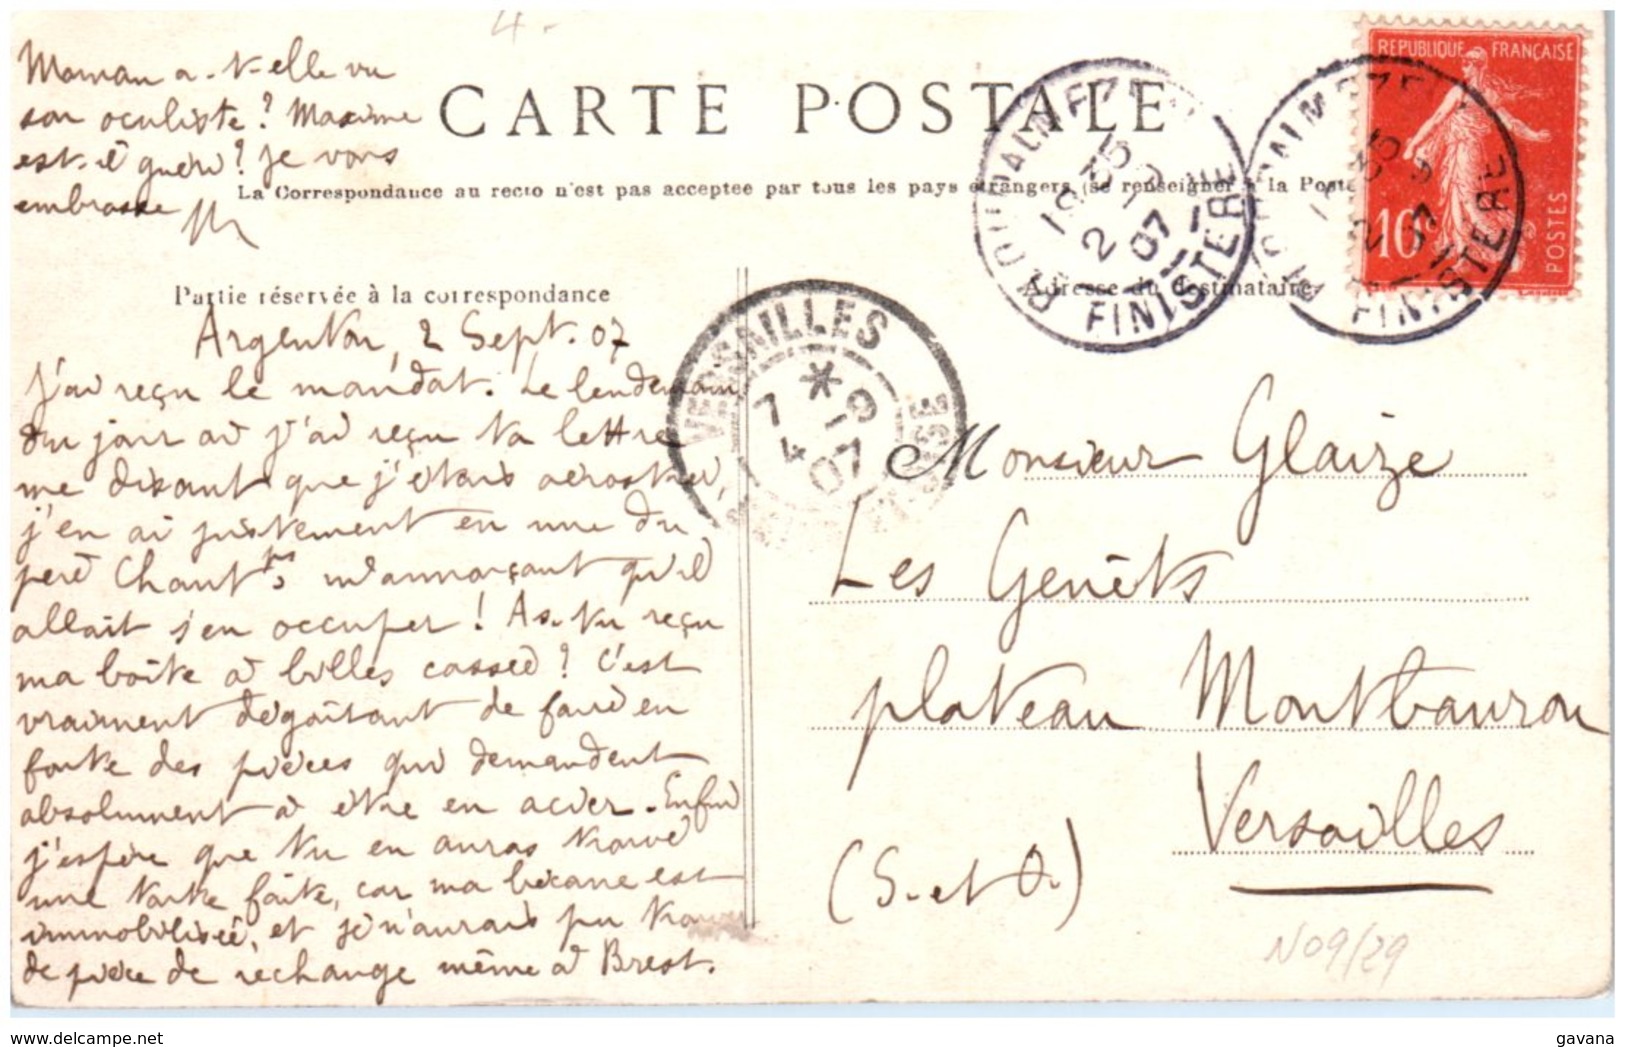 4.-
Maman a-t-elle vu
son oculiste? Maxime
est-il guéri? Je vous
embrasse
CARTE POSTALE
La Correspondance au recto n'est pas acceptée par tous les pays étrangers (se renseigner à la Poste
Partie réservée à la correspondance
Adresse du destinataire
REPUBLIQUE FRANÇAISE
10
POSTES
PLOUDALMEZEAU
15 35
2 9
07
FINISTERE
VERSAILLES
7 *
4 -9
07
Argenton, 2 Sept. 07
J'ai reçu le mandat. Le lendemain
du jour où j'ai reçu ta lettre
me disant que j'étais aérostier,
j'en ai justement eu une du
père Chant.ps m'annonçant qu'il
allait s'en occuper! As-tu reçu
ma boîte à billes cassée? C'est
vraiment dégoûtant de faire en
fonte des pièces qui demandent
absolument à être en acier. Enfin
j'espère que tu en auras trouvé
une toute faite, car ma bécane est
immobilisée, et je n'aurais pu trouver
de pièce de rechange même à Brest.
Monsieur Glaize
Les Genêts
plateau Montbauron
Versailles
(S. et O.)
N09/29
www.delcampe.net
gavana